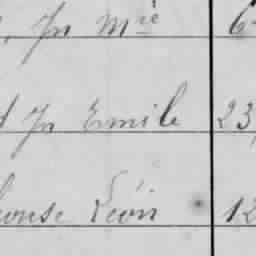 Jn Mie 6
Jn Emile 23
Léon 12